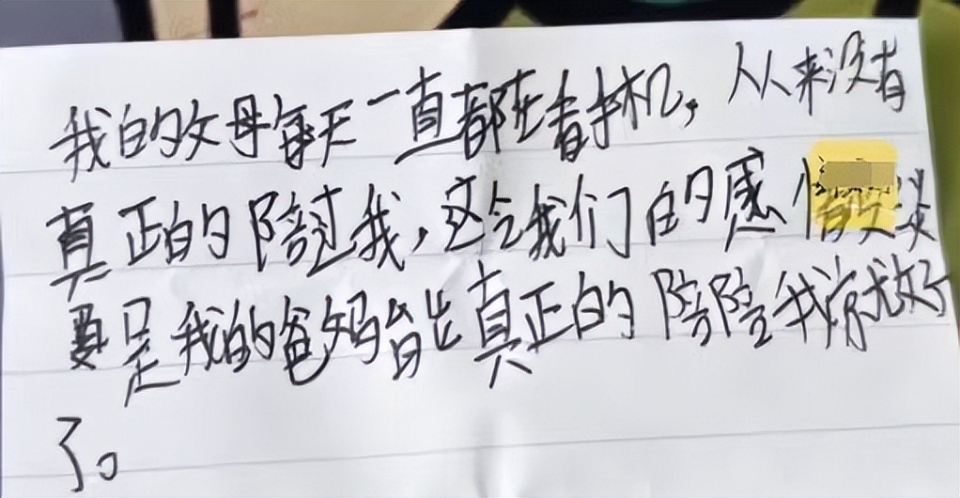 我的父母每天一直都在看手机，从来没有
真正的陪过我，这令我们的感情
要是我的爸妈能真正的陪陪我就好
了。